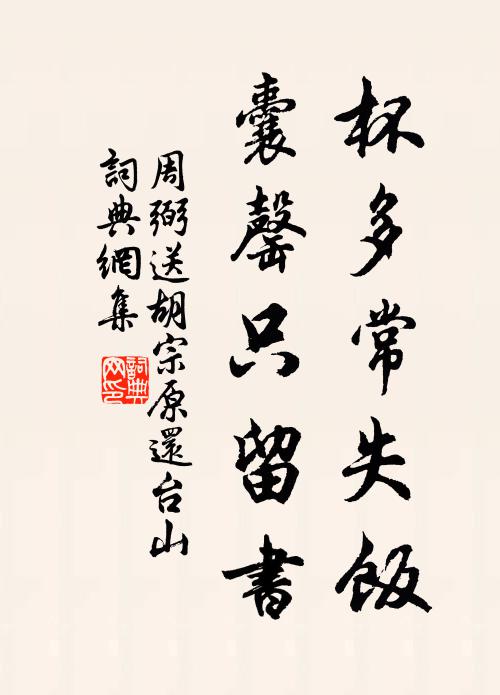 杯多常失飯
囊罄只留書
周弼送胡宗原還台山
詞典網集
詞典
网印